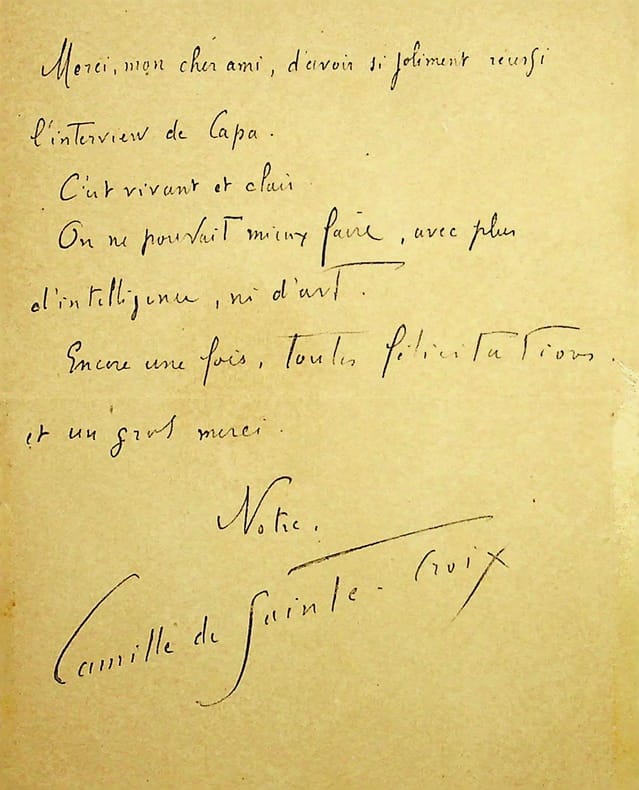 Merci, mon cher ami, d'avoir si joliment réussi
l'interview de Capa.
C'est vivant et clair
On ne pouvait mieux faire, avec plus
d'intelligence, ni d'art.
Encore une fois, toutes félicitations.
et un gros merci.
Votre.
Camille de Sainte-Croix